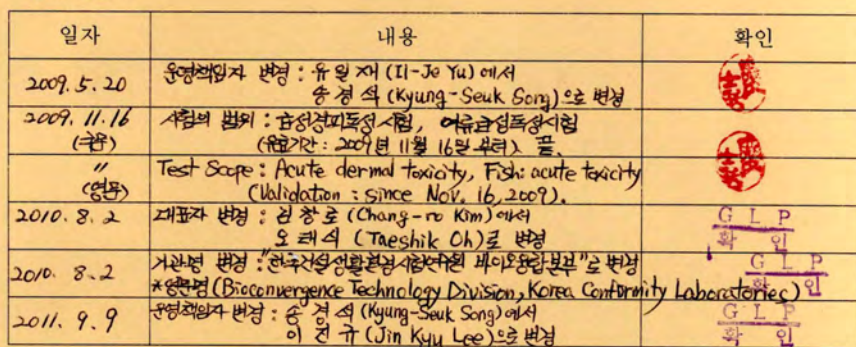 일자 내용 확인
2009. 5. 20 운영책임자 변경 : 유일재 (Il-Je Yu) 에서
송경석 (Kyung-Seuk Song)으로 변경
2009. 11. 16 시험의 범위 : 급성경피독성시험, 어류급성독성시험
(국문) (유효기간 : 2009년 11월 16일 부터). 끝.
〃 Test Scope : Acute dermal toxicity, Fish: acute toxicity
(영문) (Validation : since Nov. 16, 2009).
2010. 8. 2 대표자 변경 : 김창로 (Chang-ro Kim) 에서 G L P
오태식 (Taeshik Oh)로 변경 확 인
2010. 8. 2 기관명 변경 : "한국건설생활환경시험연구원 바이오융합본부"로 변경 G L P
*영문명 (Bioconvergence Technology Division, Korea Conformity Laboratories) 확 인
2011. 9. 9 운영책임자 변경 : 송경석 (Kyung-Seuk Song) 에서 G L P
이진규 (Jin Kyu Lee)으로 변경 확 인